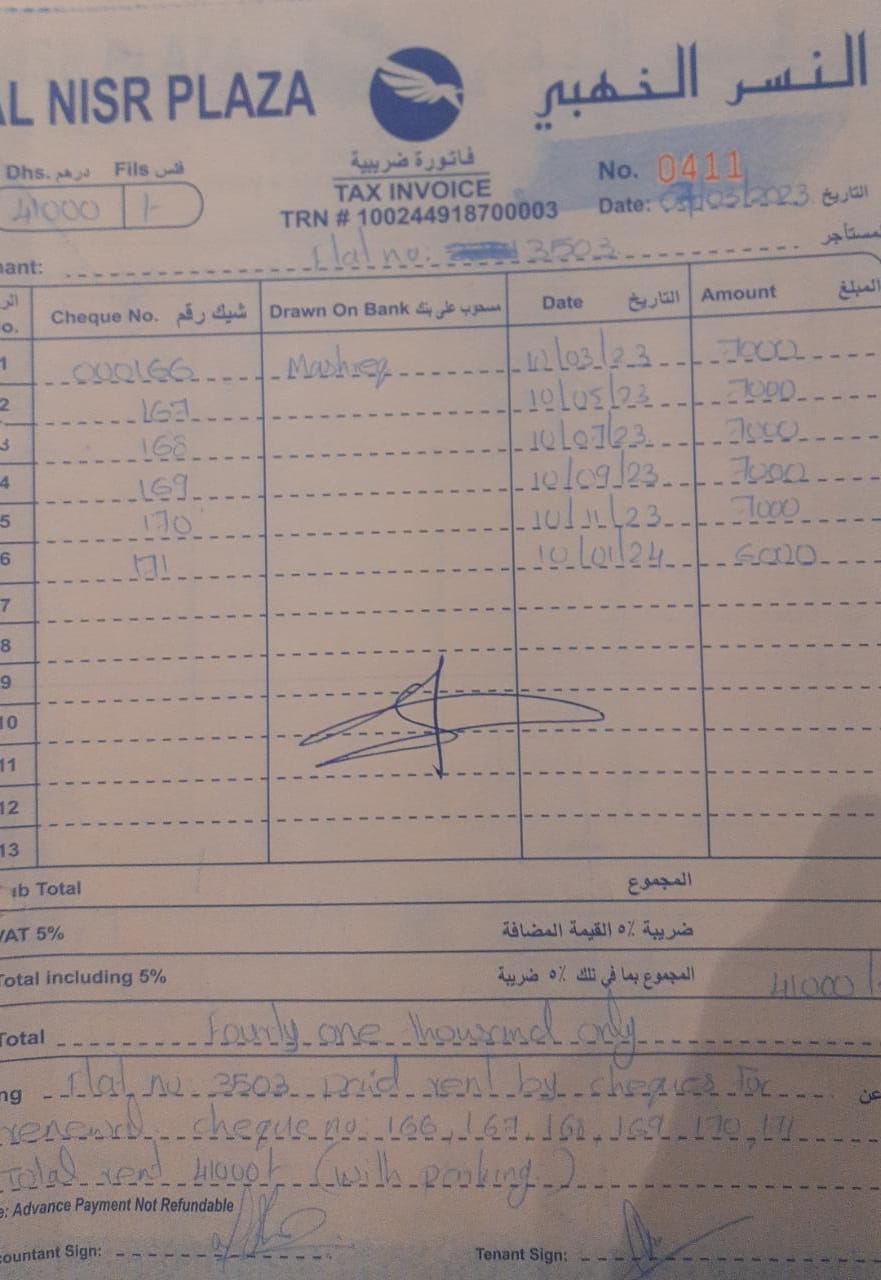 AL NISR PLAZA
النسر الذهبي
Dhs. درهم Fils فلس
41000 /-
فاتورة ضريبية
TAX INVOICE
TRN # 100244918700003
No. 0411
Date: 03/2023 التاريخ
nant: Flat no: 3503 مستأجر
o. Cheque No. شيك رقم Drawn On Bank مسحوب على بنك Date التاريخ Amount المبلغ
1 000166 Mashreq 12/03/23 7000
2 167 10/05/23 7000
3 168 10/07/23 7000
4 169 10/09/23 7000
5 170 10/11/23 7000
6 171 10/01/24 6000
7
8
9
10
11
12
13
ub Total المجموع
VAT 5% ضريبة ٥٪ القيمة المضافة
Total including 5% المجموع بما في تلك ٥٪ ضريبة 41000/
Total Fourty one thousand only
ng Flat no 3503 paid rent by cheques for عن
renewal cheque no: 166, 167, 168, 169, 170, 171
Total rent 41000/- (with parking)
e: Advance Payment Not Refundable
countant Sign:
Tenant Sign: